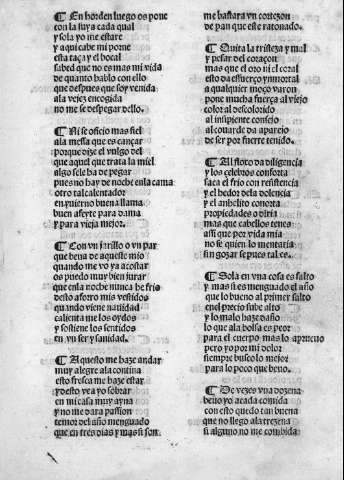 ¶ En horden luego os pone
con la suya cada qual
y sola yo me estare
y aqui cabe mi porne
esta taça y el bocal
sabed que no es mas mi vida
de quanto hablo con ello
que despues que soy venida
ala vejez encogida
no me se despegar dello.
¶ Ni se oficio mas fiel
ala mesa que escançar
porque dize el vulgo del
que aquel que trata la miel
algo sele ha de pegar
pues no hay de noche enla cama
otro tal calentador
en yuierno buena llama
buen afeyte para dama
y para vieja mejor.
¶ Con vn jarillo o vn par
que beua de aqueste mio
quando me vo ya acostar
os puedo muy bien jurar
que enla noche nunca he frio
desto aforro mis vestidos
quando viene nauidad
calienta me los oydos
y sostiene los sentidos
en vn ser y sanidad.
¶ Aquesto me haze andar
muy alegre ala contina
esto fresca me haze estar
y desto vea yo sobrar
en mi casa muy ayna
y no me dara passion
temor del año menguado
que en tres dias y mas si son
me bastara vn cortezon
de pan que este ratonado.
¶ Quita la tristeza y mal
y pesar del coraçon
mas que el oro ni el coral
esto da esfuerço ynmortal
a qualquier moço varon
pone mucha fuerça al viejo
color al descolorido
al insipiente consejo
al couarde da aparejo
de ser por fuerte tenido.
¶ Al floto da diligencia
y los celebros conforta
saca el frio con resistencia
y el hedor dela dolencia
y el anhelito conorta
propiedades os diria
mas que cabellos teneys
assi que por vida mia
no se quien lo mentaria
sin gozar se pues tal es.
¶ Sola en vna cosa es falto
y mas si es menguado el año
que lo bueno al primer salto
en el precio sube alto
y lo malo haze daño
lo que ala bolsa es peor
para el cuerpo mas lo aprueuo
pero yo por mi dolor
siempre busco lo mejor
para lo poco que beuo.
¶ De vezes vna dozena
beuo yo acada comida
con esto quedo tan buena
que no llego ala trezena
si alguno no me combida